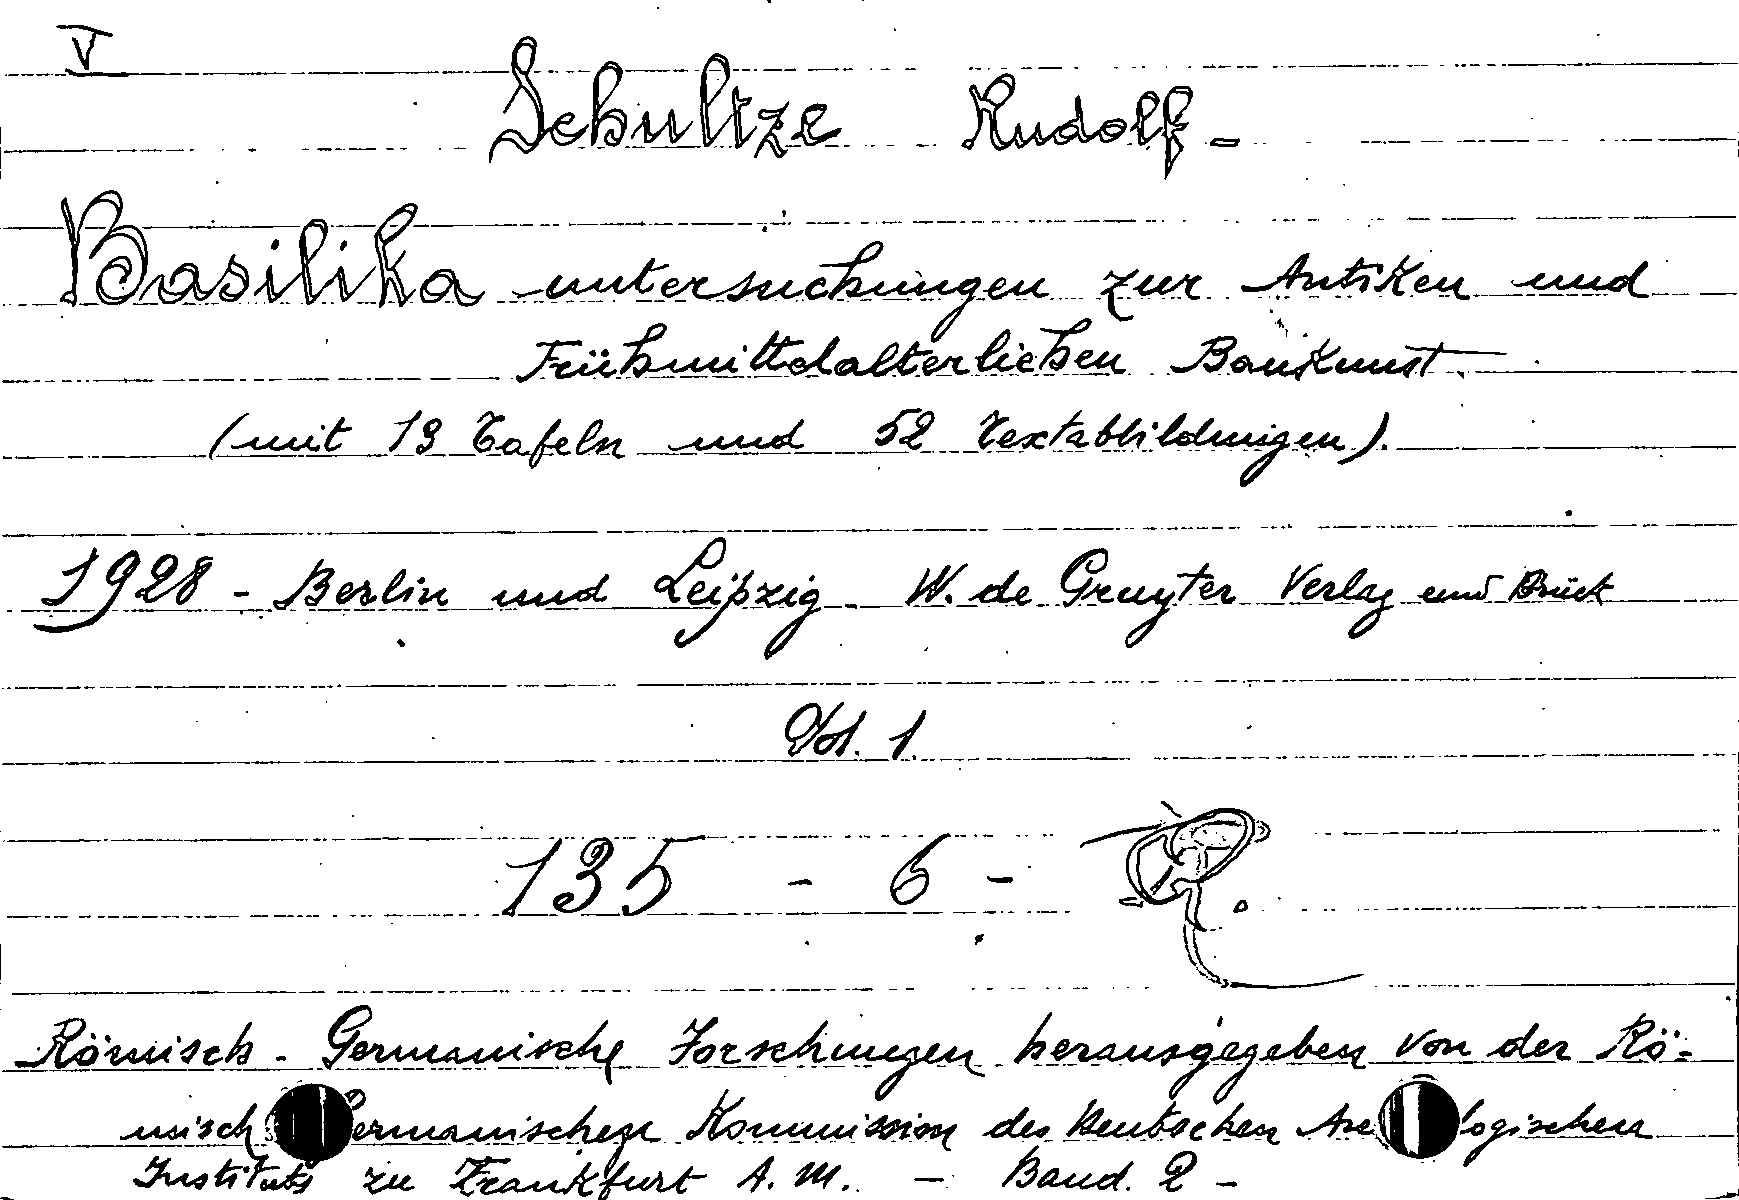 V
Schultze Rudolf -
Basilika untersuchungen zur Antiken und
Frühmittelalterlichen Baukunst.
(mit 19 Tafeln und 52 Textabbildungen).
1928 - Berlin und Leipzig - W. de Gruyter Verlag und Drück
Vol. 1.
135 - 6 - R.
Römisch - Germanische Forschungen herausgegeben von der Rö-
misch ermanischen Kommission des Deutschen logischen
Instituts zu Frankfurt A. M. - Band. 2 -